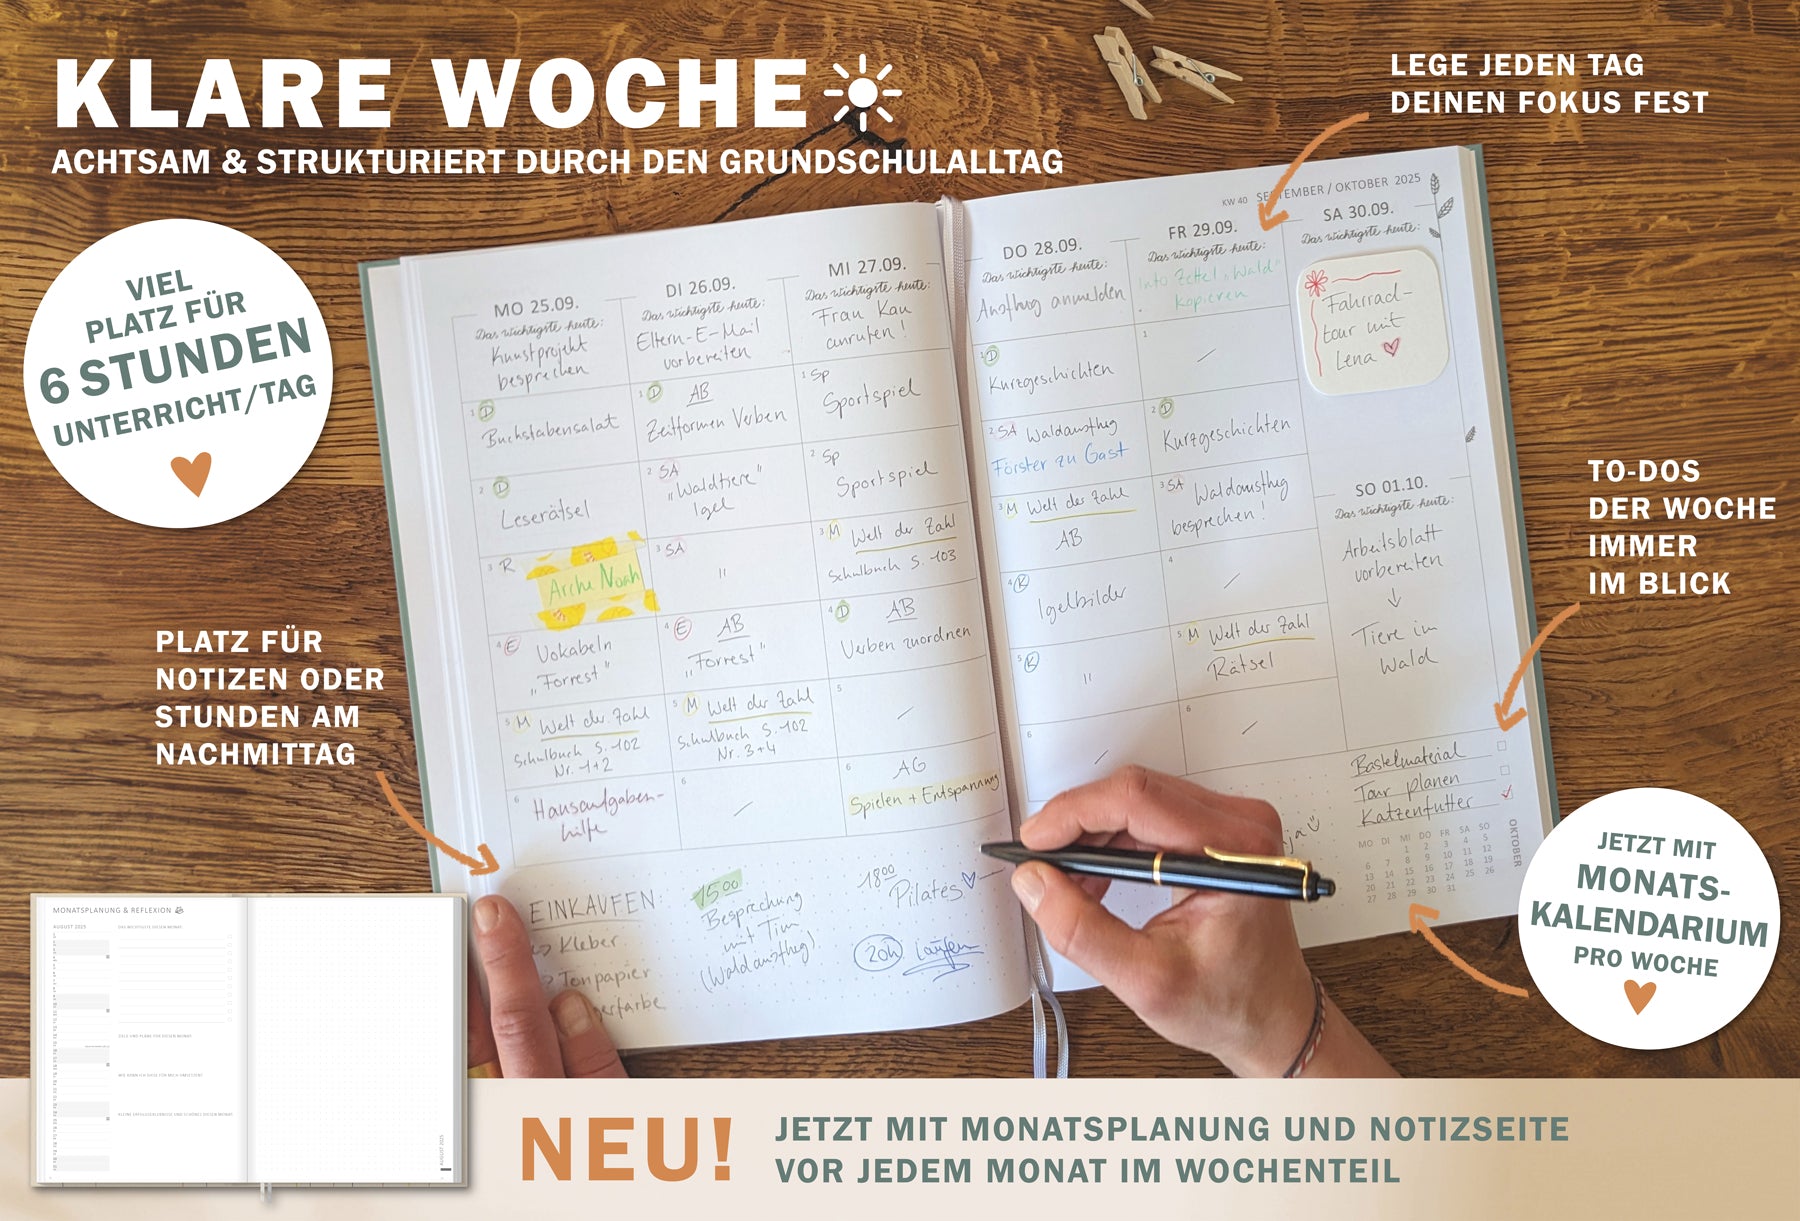 KLARE WOCHE
ACHTSAM & STRUKTURIERT DURCH DEN GRUNDSCHULALLTAG
LEGE JEDEN TAG
DEINEN FOKUS FEST
VIEL
PLATZ FÜR
6 STUNDEN
UNTERRICHT/TAG
PLATZ FÜR
NOTIZEN ODER
STUNDEN AM
NACHMITTAG
TO-DOS
DER WOCHE
IMMER
IM BLICK
JETZT MIT
MONATS-
KALENDARIUM
PRO WOCHE
MO 25.09.
Das wichtigste heute:
Kunstprojekt
besprechen
1 D
Buchstabensalat
2 D
Leserätsel
3 R
Arche Noah
4 E Vokabeln
"Forrest"
5 M Welt der Zahl
Schulbuch S. 102
Nr. 1+2
6 Hausaufgaben-
hilfe
DI 26.09.
Das wichtigste heute:
Eltern-E-Mail
vorbereiten
1 D AB
Zeitformen Verben
2 SA
"Waldtiere"
Igel
3 SA
"
4 E AB
"Forrest"
5 M Welt der Zahl
Schulbuch S. 102
Nr. 3+4
6 /
MI 27.09.
Das wichtigste heute:
Frau Kau
anrufen!
1 Sp
Sportspiel
2 Sp
Sportspiel
3 M Welt der Zahl
Schulbuch S. 103
4 D AB
Verben zuordnen
5 /
6 AG
Spielen + Entspannung
EINKAUFEN:
Kleber
Tonpapier
15 00
Besprechung
mit Tim
(Waldausflug)
18 00
Pilates
20h laufen
KW 40 SEPTEMBER / OKTOBER 2025
DO 28.09.
Das wichtigste heute:
Ausflug anmelden
1 D
Kurzgeschichten
2 SA Waldausflug
Förster zu Gast
3 M Welt der Zahl
AB
4 K
Igelbilder
5 K
"
6 /
FR 29.09.
Das wichtigste heute:
Info Zettel "Wald"
kopieren
1 /
2 D
Kurzgeschichten
3 SA Waldausflug
besprechen!
4 /
5 M Welt der Zahl
Rätsel
6 /
SA 30.09.
Das wichtigste heute:
Fahrrad-
tour mit
Lena
SO 01.10.
Das wichtigste heute:
Arbeitsblatt
vorbereiten
↓
Tiere im
Wald
Bastelmaterial
Tour planen
Katzenfutter
OKTOBER
MO DI MI DO FR SA SO
1 2 3 4 5
6 7 8 9 10 11 12
13 14 15 16 17 18 19
20 21 22 23 24 25 26
27 28 29 30 31
MONATSPLANUNG & REFLEXION
AUGUST 2025
DAS WICHTIGSTE DIESEN MONAT:
AUGUST 2025
NEU!
JETZT MIT MONATSPLANUNG UND NOTIZSEITE
VOR JEDEM MONAT IM WOCHENTEIL